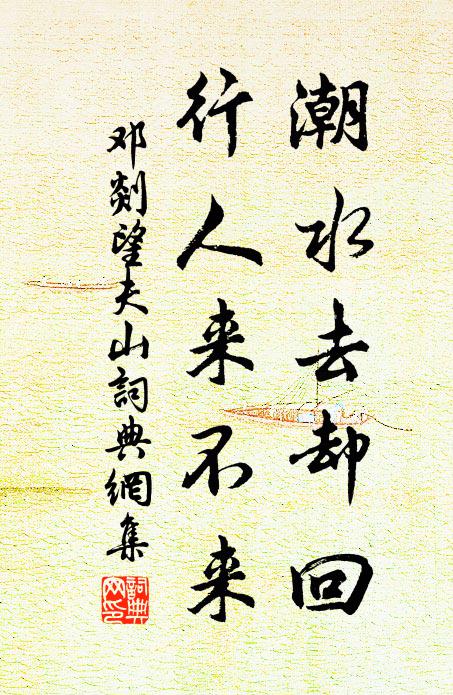 潮水去却回
行人来不来
邓剡望夫山詞典網集
詞典
网印